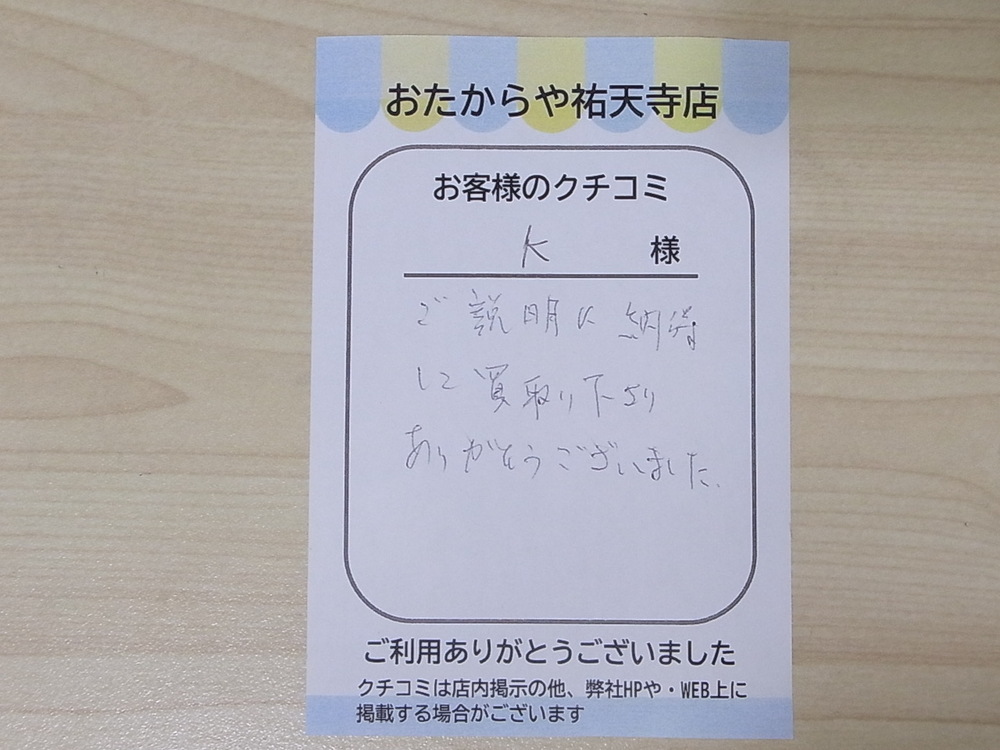 おたからや祐天寺店
お客様のクチコミ
K 様
ご説明に納得
して買取り下さり
ありがとうございました.
ご利用ありがとうございました
クチコミは店内掲示の他、弊社HPや・WEB上に
掲載する場合がございます